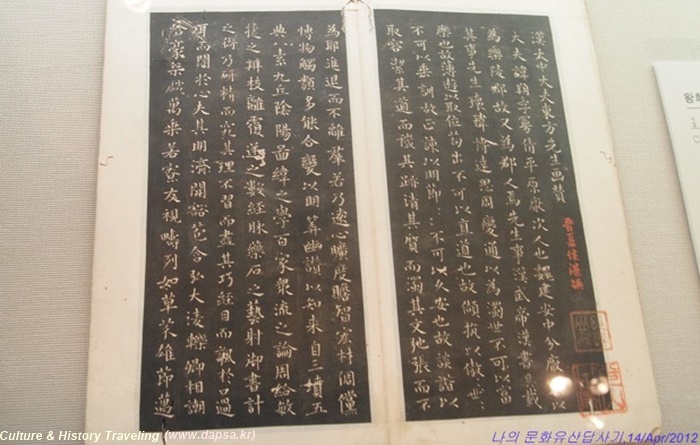 漢太中大夫東方先生画贊
晉夏侯湛撰
大夫諱朔字曼倩平原厭次人也魏建安中分厭次以
為樂陵郡故又為郡人焉先生事漢武帝漢書具載
其事先生瓌瑋博達思周變通以為濁世不可以富
樂也故薄遊以取位苟出不可以直道也故頡抗以傲世
不可以垂訓故正諫以明節不可以久安也故詼諧以
取容潔其道而穢其跡清其質而濁其文弛張而不
為耶進退而不離羣若乃遠心曠度贍智宏材倜儻
博物觸類多能合變以明筭幽讚以知来自三墳五
典八索九丘陰陽圖緯之學百家衆流之論周給敏
捷之辯枝離覆逆之數經脉藥石之藝射御書計
之術乃研精而究其理不習而盡其巧經目而諷於口過
耳而闇於心夫其明濟開豁苞含弘大淩轢卿相謿
豪桀萬乘若寮友視疇列如草芥雄節邁
왕희
Culture & History Traveling (www.dapsa.kr)
나의 문화유산답사기,14/Apr/2012